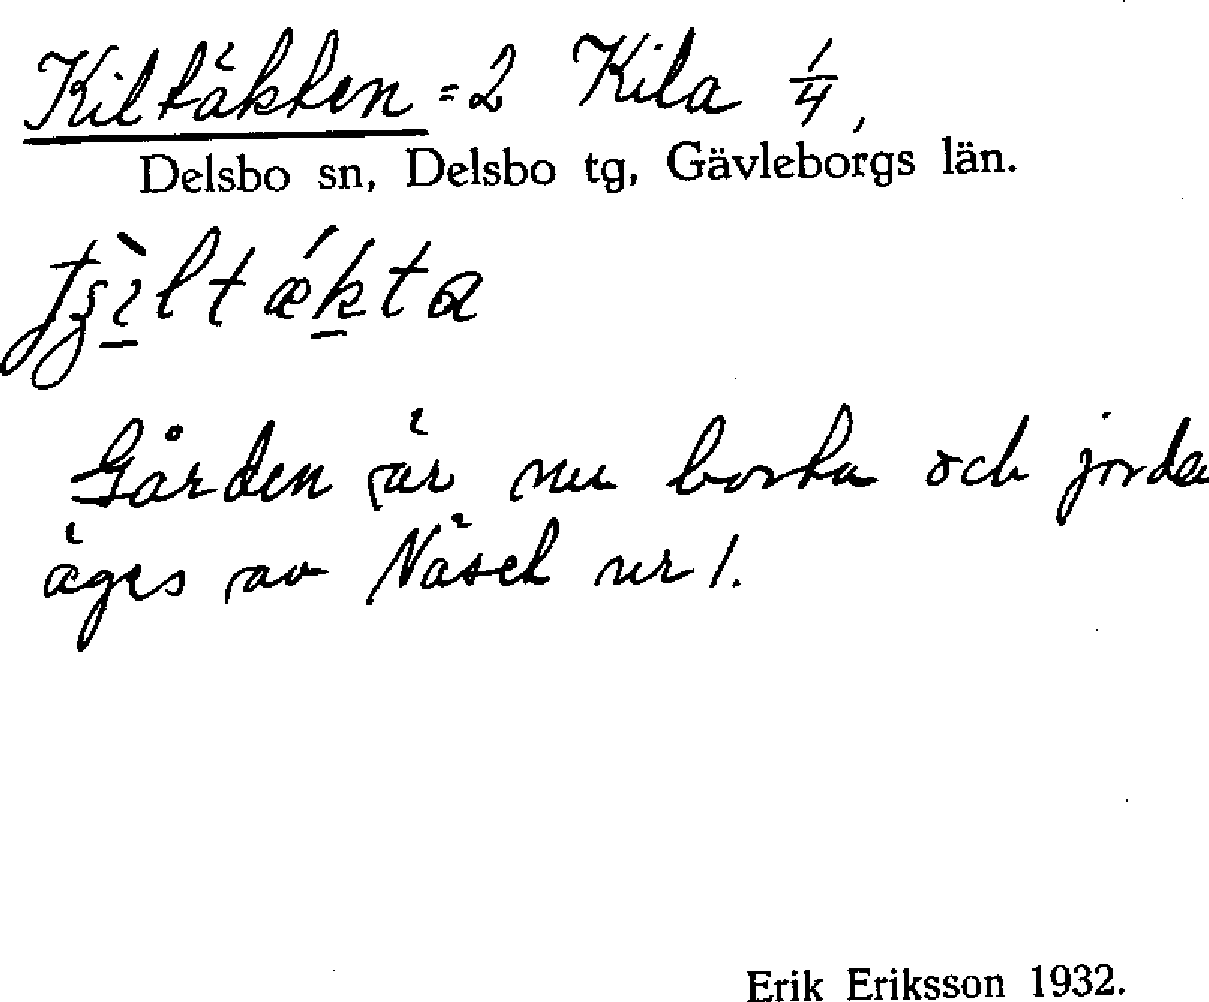 Kiltäkten = 2 Kila 1/4,
Delsbo sn, Delsbo tg, Gävleborgs län.
Gården är nu borta och jorda
äges av Näsel nr 1.
Erik Eriksson 1932.